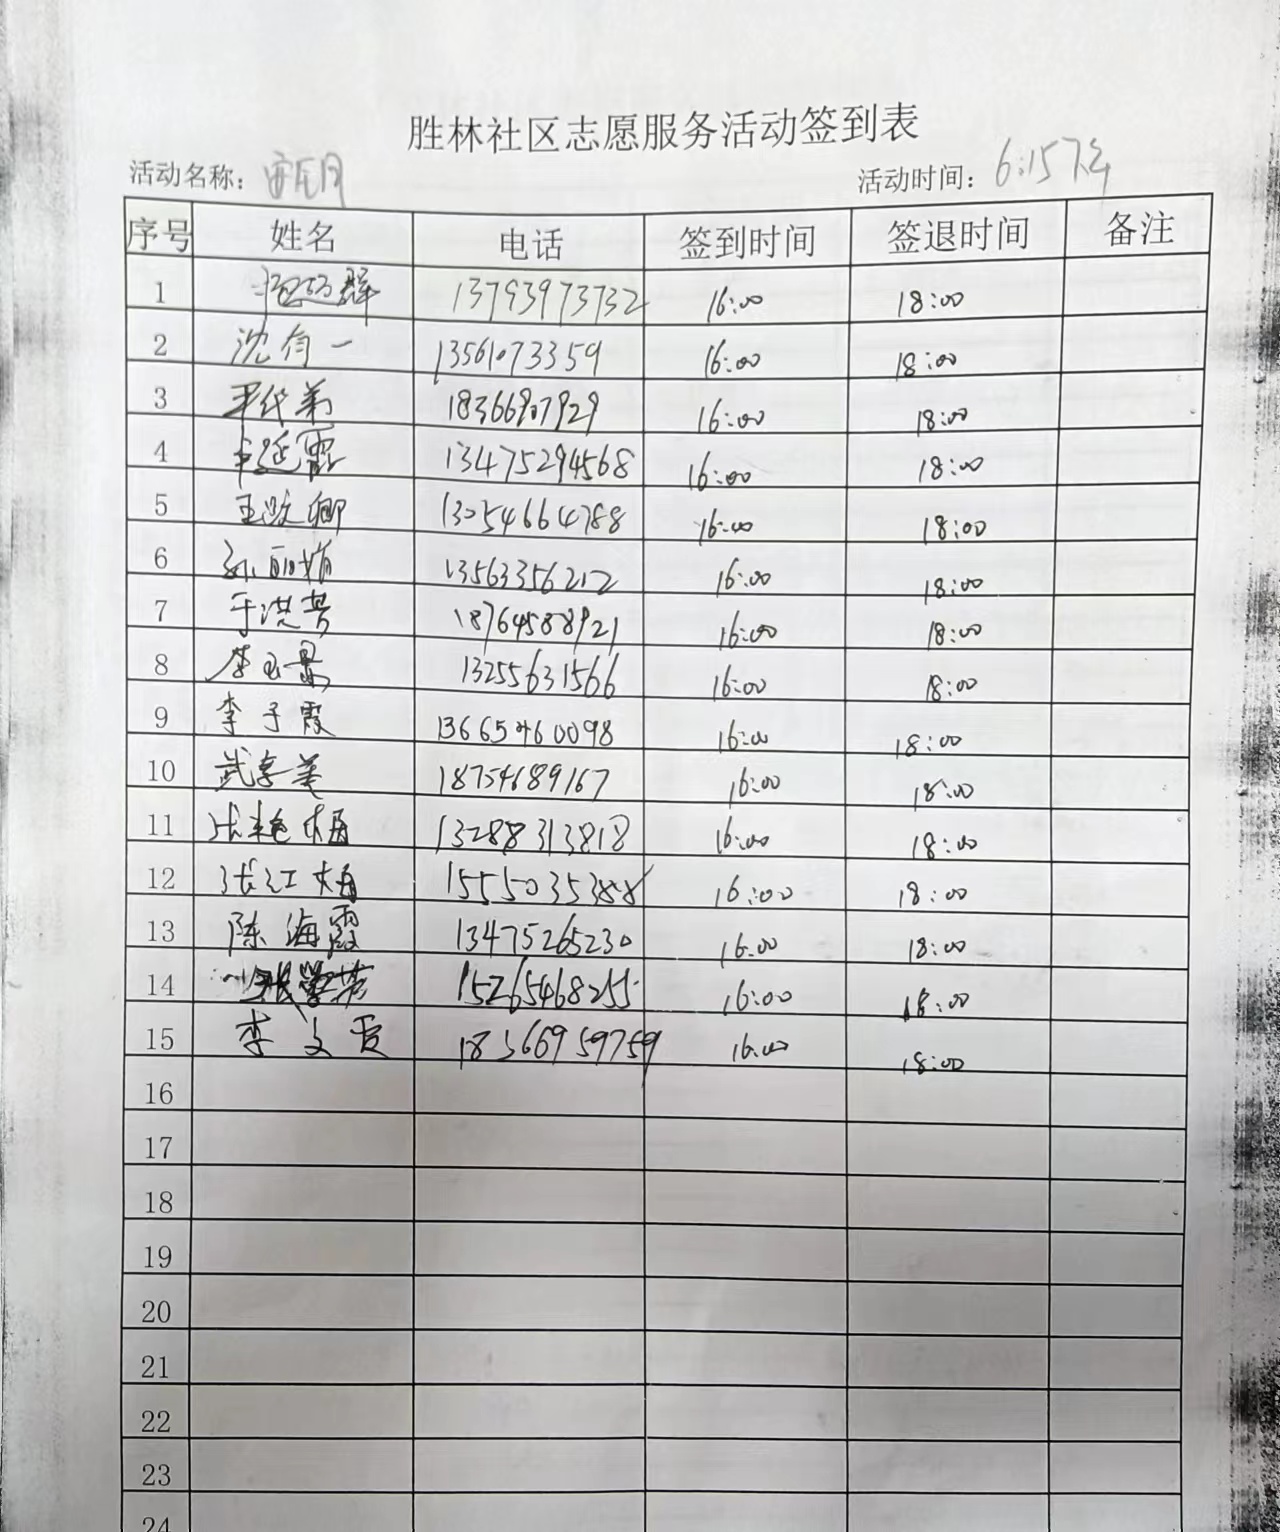 胜林社区志愿服务活动签到表
活动名称： 活动时间：6.15下午
序号 姓名 电话 签到时间 签退时间 备注
1 群 13793973732 16:00 18:00
2 沈 一 13561073359 16:00 18:00
3 18366907929 16:00 18:00
4 延霞 13475294568 16:00 18:00
5 王 卿 13054664788 16:00 18:00
6 孙丽娟 13563356212 16:00 18:00
7 于洪芳 18764588921 16:00 18:00
8 李玉景 13255631566 16:00 18:00
9 李子霞 13665460098 16:00 18:00
10 武 美 18754689167 16:00 18:00
11 张艳梅 13288313818 16:00 18:00
12 张江梅 15550035388 16:00 18:00
13 陈海霞 13475265230 16:00 18:00
14 张 芳 15265468255 16:00 18:00
15 李文贵 18366959759 16:00 18:00
16
17
18
19
20
21
22
23
24